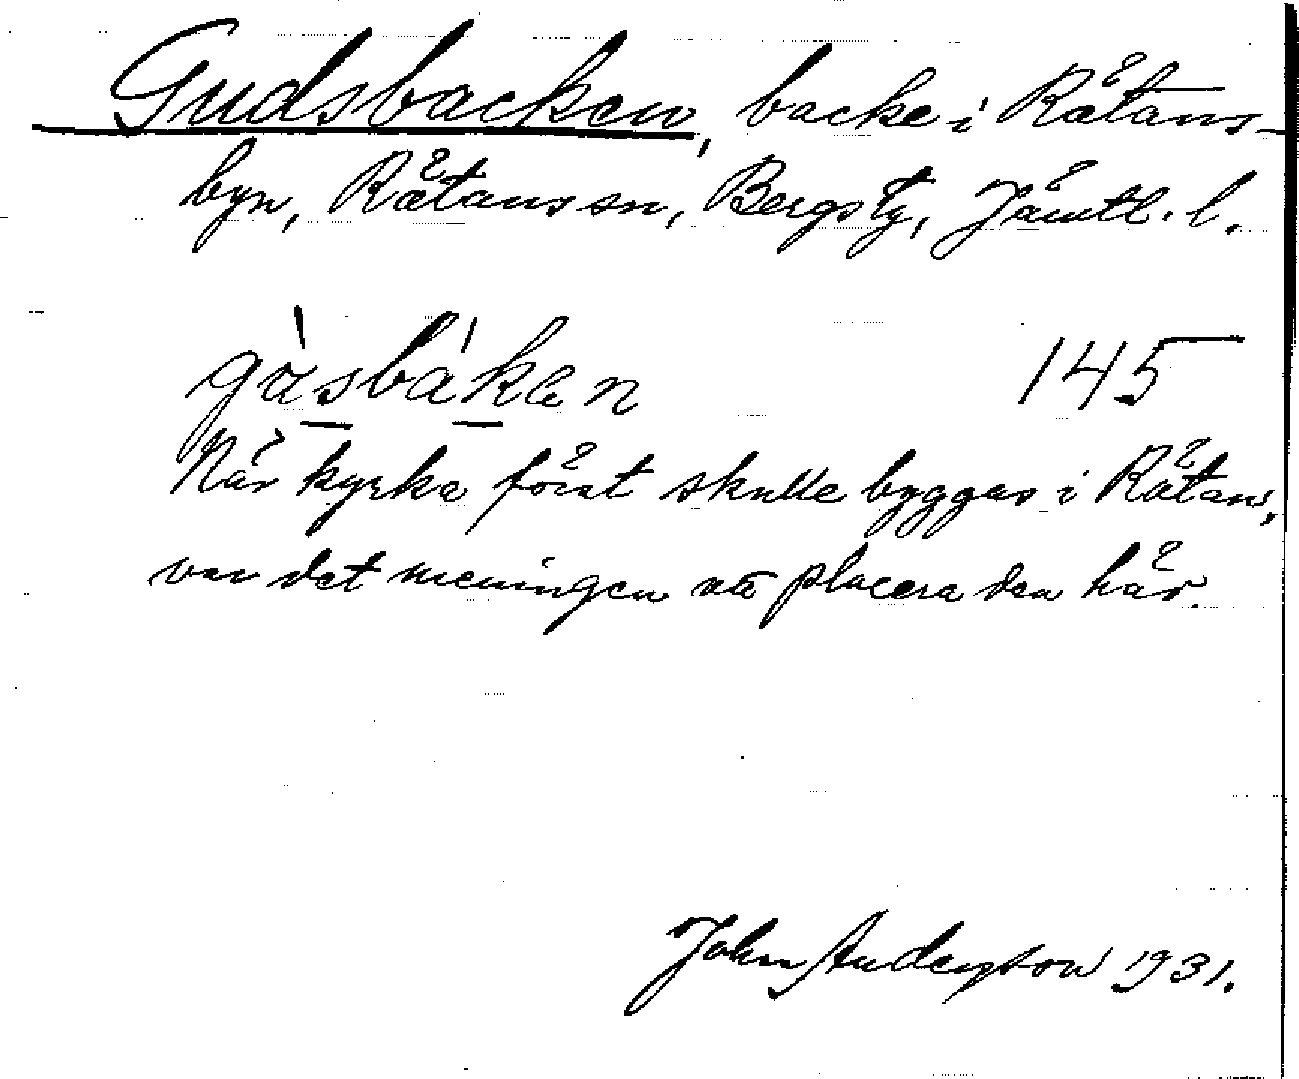 Gudsbacken, backe i Råtans-
byn, Råtans sn, Bergs tg, Jämtl. l.
gásbákan 145
När kyrka först skulle byggas i Råtans,
var det meningen att placera den här.
John Anderzon 1931.